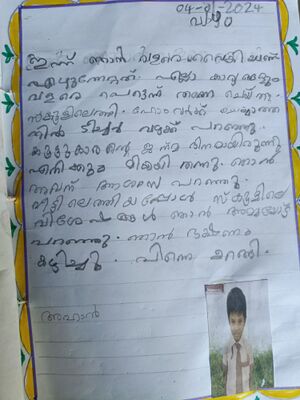 04-01-2024
വ്യാഴം
ഇന്ന് ഞാൻ വളരെ വൈകിയാണ്
എഴുന്നേറ്റത്. എല്ലാ കാര്യങ്ങളും
വളരെ പെട്ടെന്ന് തന്നെ ചെയ്തു.
സ്കൂളിലെത്തി. ഹോംവർക്ക് ചെയ്യാത്ത
തിൽ ടീച്ചർ വഴക്ക് പറഞ്ഞു.
കൂട്ടുകാരന്റെ ജന്മദിനമായിരുന്നു
എനിക്കും മിഠായി തന്നു. ഞാൻ
അവന് ആശംസ പറഞ്ഞു.
വീട്ടിലെത്തിയപ്പോൾ സ്കൂളിലെ
വിശേഷങ്ങൾ ഞാൻ അമ്മയോട്
പറഞ്ഞു. ഞാൻ ഭക്ഷണം
കഴിച്ചു. പിന്നെ ഉറങ്ങി.
അഹാൻ